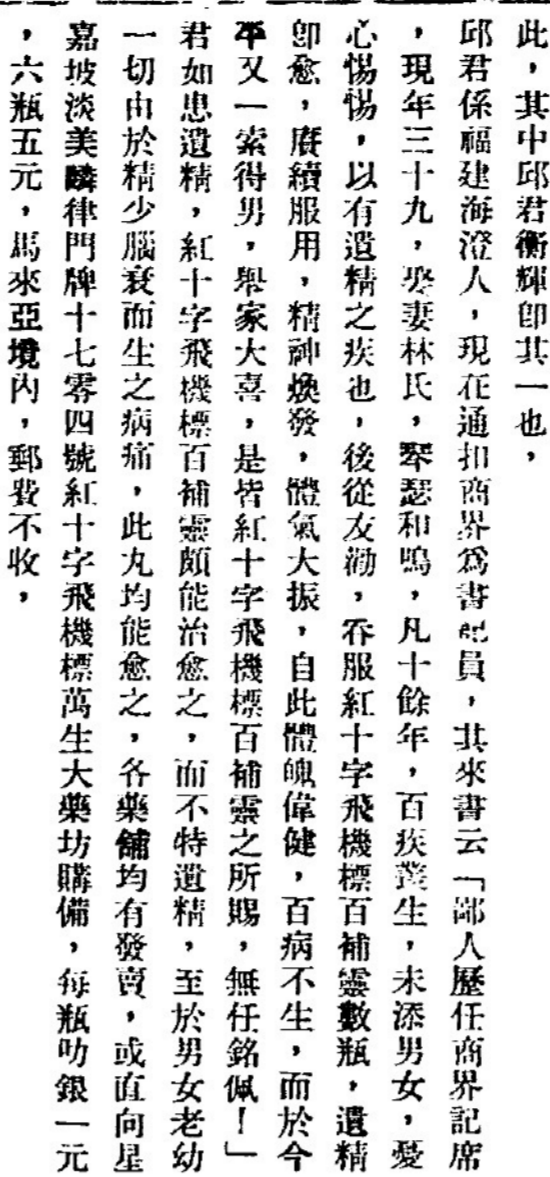 此，其中邱君衡輝卽其一也，
邱君係福建海澄人，現在通扣商界爲書記員，其來書云「鄙人歷任商界記席
，現年三十九，娶妻林氏，琴瑟和鳴，凡十餘年，百疾叢生，未添男女，憂
心惕惕，以有遺精之疾也，後從友勸，吞服紅十字飛機標百補靈數瓶，遺精
卽愈，賡續服用，精神煥發，體氣大振，自此體魄偉健，百病不生，而於今
年又一索得男，舉家大喜，是皆紅十字飛機標百補靈之所賜，無任銘佩！」
君如患遺精，紅十字飛機標百補靈頗能治愈之，而不特遺精，至於男女老幼
一切由於精少腦衰而生之病痛，此丸均能愈之，各藥舖均有發賣，或直向星
嘉坡淡美麟律門牌十七零四號紅十字飛機標萬生大藥坊購備，每瓶叻銀一元
，六瓶五元，馬來亞境內，郵費不收，